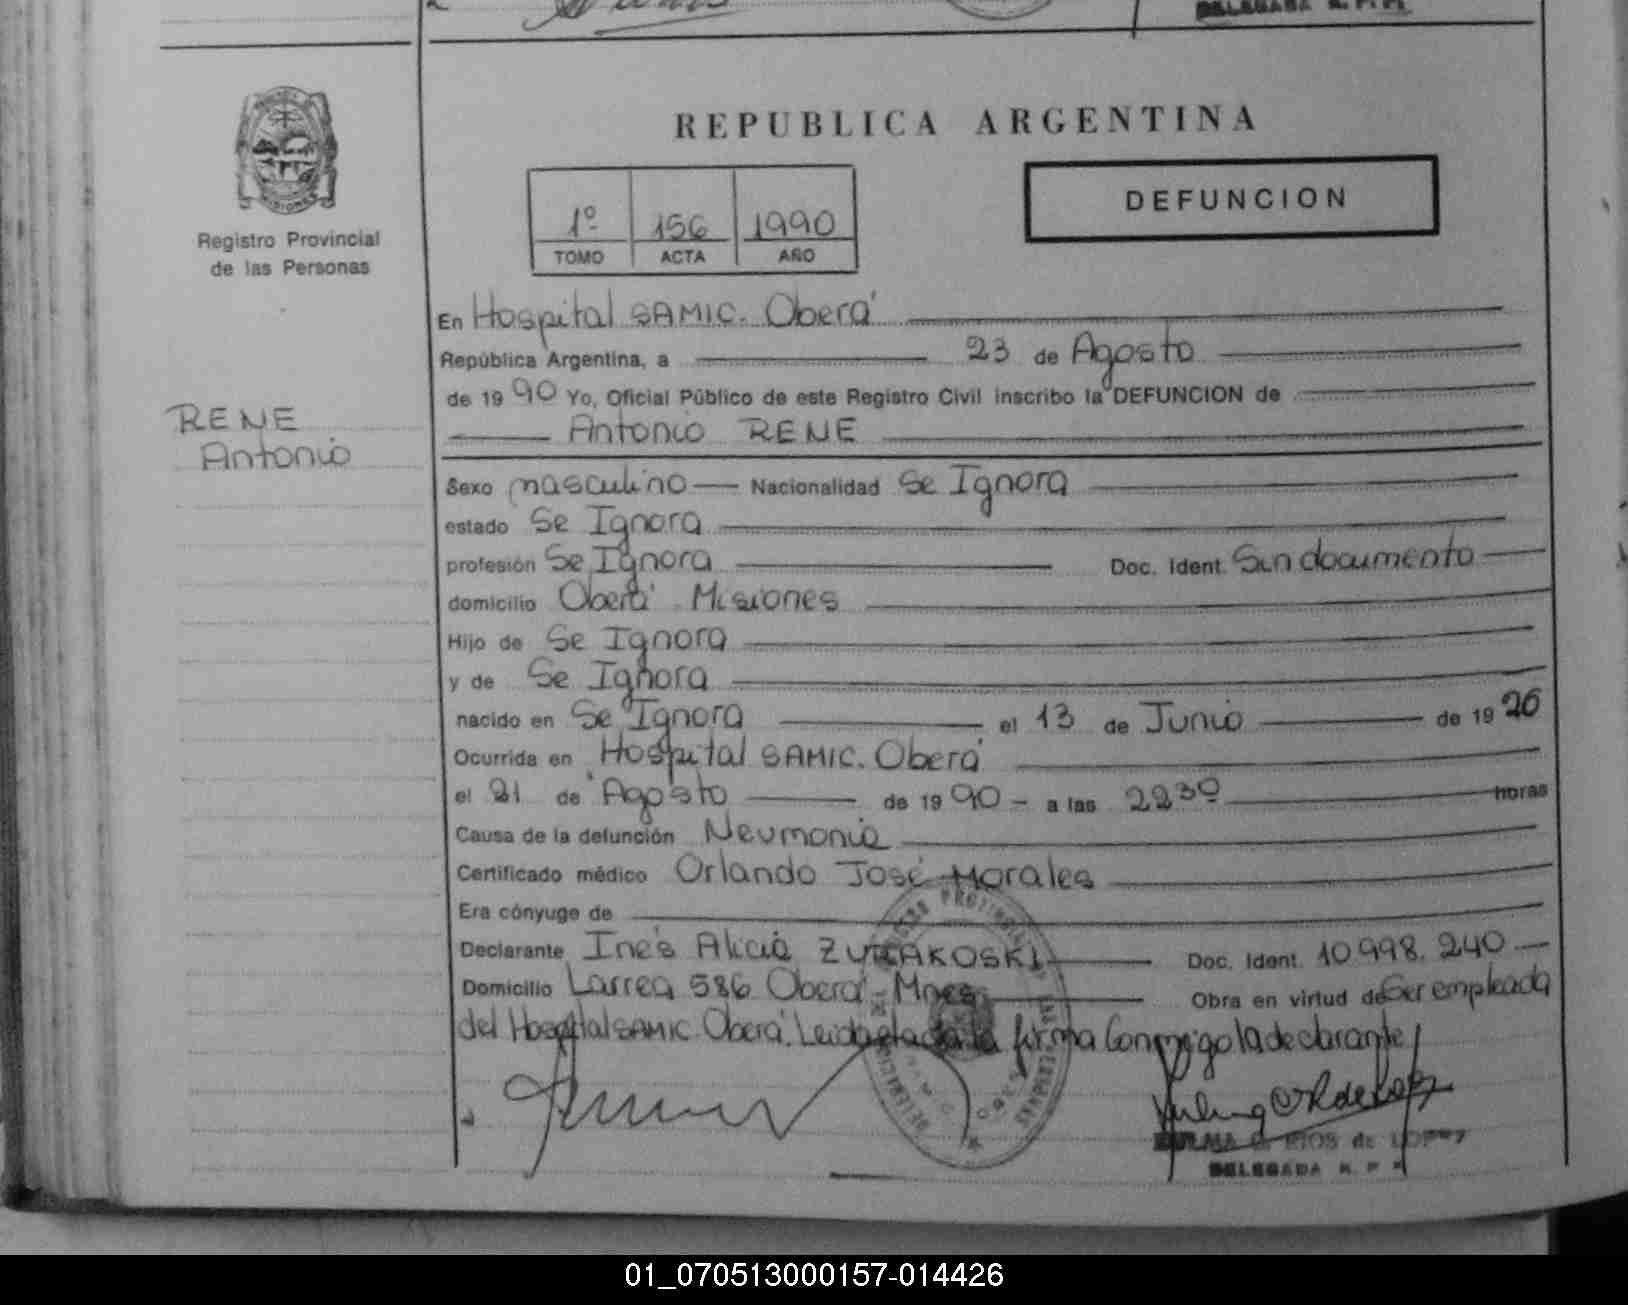 REPUBLICA ARGENTINA
DEFUNCION
1º 156 1990
TOMO ACTA AÑO
MISIONES
Registro Provincial
de las Personas
RENE
Antonio
En Hospital SAMIC. Oberá
República Argentina, a 23 de Agosto
de 1990 Yo, Oficial Público de este Registro Civil inscribo la DEFUNCION de
Antonio RENE
Sexo masculino Nacionalidad Se Ignora
estado Se Ignora
profesión Se Ignora Doc. Ident. Sin documento
domicilio Oberá Misiones
Hijo de Se Ignora
y de Se Ignora
nacido en Se Ignora el 13 de Junio de 1926
Ocurrida en Hospital SAMIC. Oberá
el 21 de Agosto de 1990 - a las 22³⁰ horas
Causa de la defunción Neumonia
Certificado médico Orlando José Morales
Era cónyuge de
Declarante Inés Alicia ZURAKOSKI Doc. Ident. 10.998.240
Domicilio Larrea 586 Oberá Mnes Obra en virtud de Ser empleada
del Hospital SAMIC Oberá. Leida el acta la firma Conmigo la declarante
RIOS de LOPEZ
DELEGADA R. P. P.
01_070513000157-014426